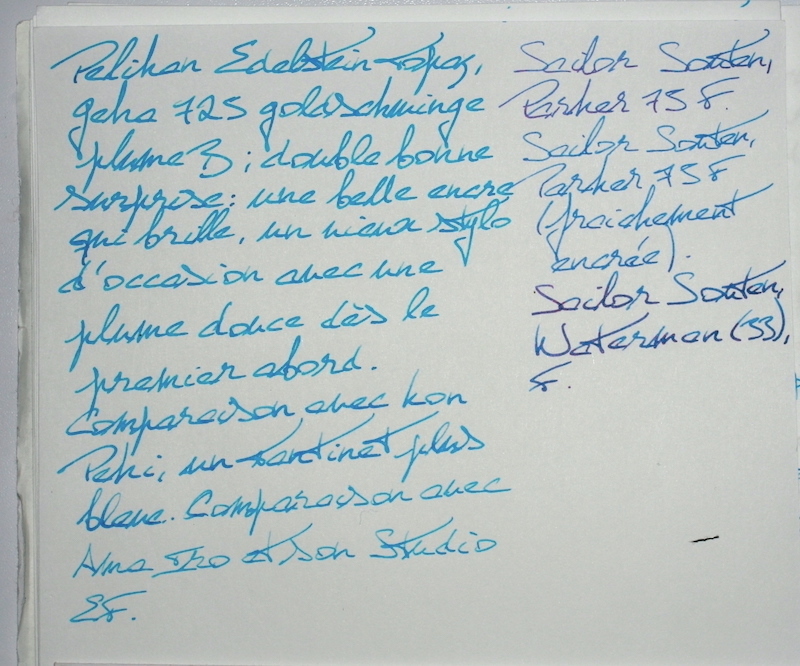 Pelikan Edelstein Topaz,
geha 725 goldschwinge
plume B ; double bonne
surprise : une belle encre
qui brille, un vieux stylo
d'occasion avec une
plume douce dès le
premier abord.
Comparaison avec kon
Peki, un tantinet plus
bleue. Comparaison avec
Ama Iro et son Studio
EF.
Sailor Souten,
Parker 75 F.
Sailor Souten,
Parker 75 F
(fraichement
encrée).
Sailor Souten,
Waterman (33),
F.